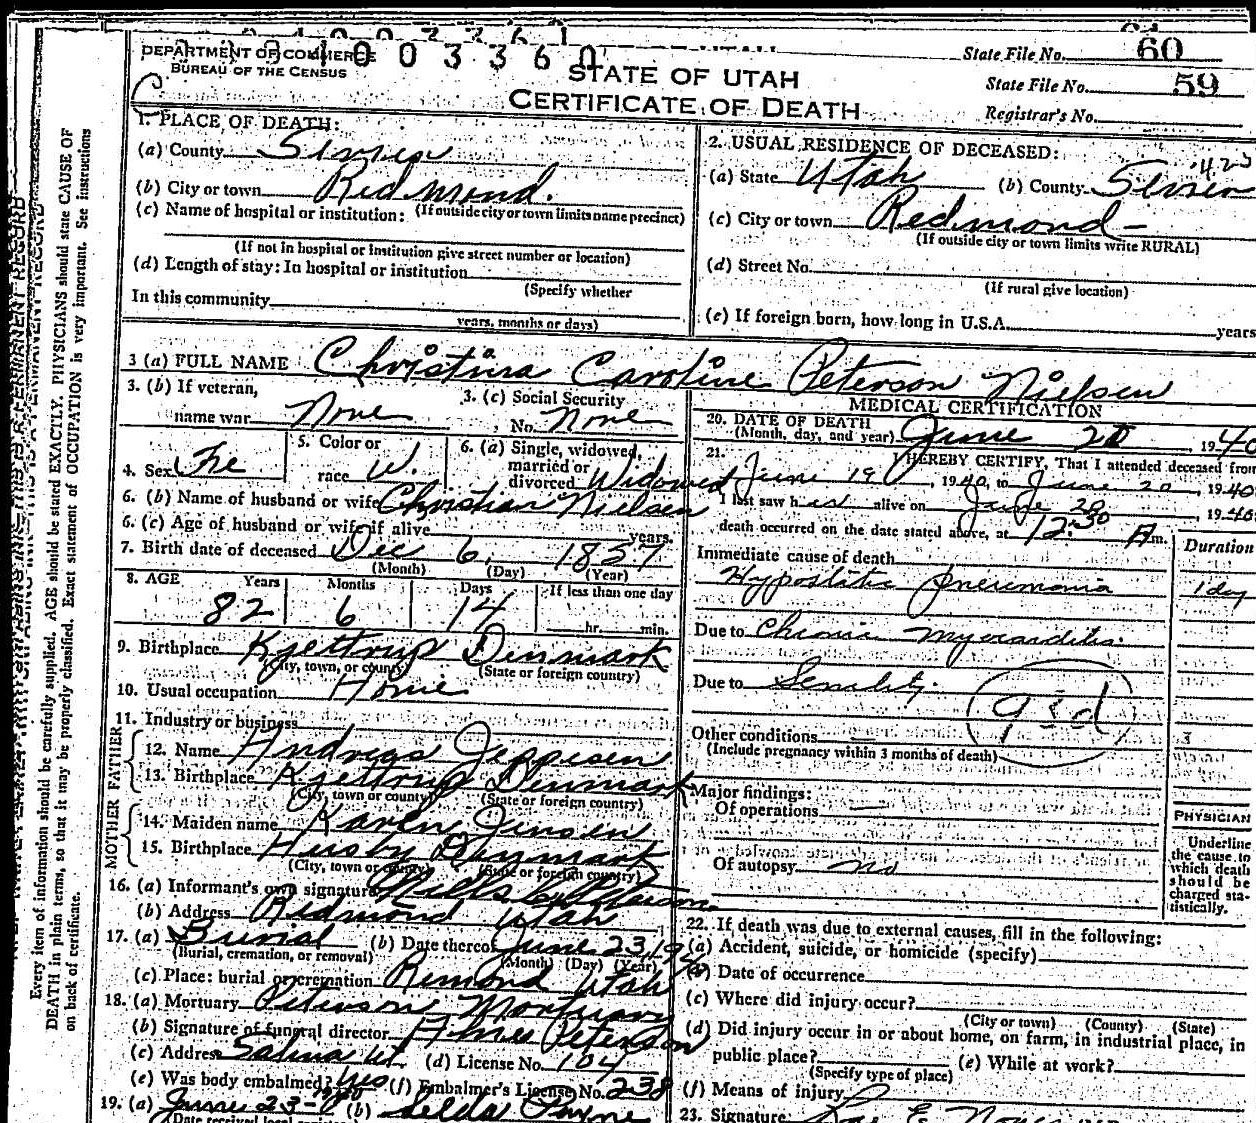 DEPARTMENT OF COMMERCE
BUREAU OF THE CENSUS
STATE OF UTAH
CERTIFICATE OF DEATH
State File No. 60
State File No. 59
Registrar's No.
1. PLACE OF DEATH:
(a) County Sevier
(b) City or town Redmond.
(c) Name of hospital or institution: (If outside city or town limits name precinct)
(If not in hospital or institution give street number or location)
(d) Length of stay: In hospital or institution
(Specify whether
In this community
years, months or days)
2. USUAL RESIDENCE OF DECEASED:
(a) State Utah (b) County Sevier
(c) City or town Redmond
(If outside city or town limits write RURAL)
(d) Street No.
(If rural give location)
(e) If foreign born, how long in U.S.A. years
3 (a) FULL NAME Christina Caroline Peterson Nielsen
3. (b) If veteran,
name war None
3. (c) Social Security
No. None
4. Sex Fe
5. Color or
race W.
6. (a) Single, widowed,
married or
divorced Widowed
6. (b) Name of husband or wife Christian Nielsen
6. (c) Age of husband or wife if alive years.
7. Birth date of deceased Dec 6, 1857
(Month) (Day) (Year)
8. AGE Years Months Days If less than one day
82 6 14 hr. min.
9. Birthplace Kjettrup Denmark
(City, town, or county) (State or foreign country)
10. Usual occupation Home
11. Industry or business
FATHER
12. Name Andreas Jeppesen
13. Birthplace Kjettrup Denmark
(City, town or county) (State or foreign country)
MOTHER
14. Maiden name Karen Jensen
15. Birthplace Husby Denmark
(City, town or county) (State or foreign country)
16. (a) Informant's own signature
(b) Address Redmond Utah
17. (a) Burial (b) Date thereof June 23, 19
(Burial, cremation, or removal) (Month) (Day) (Year)
(c) Place: burial or cremation Remond Utah
18. (a) Mortuary Peterson Mortuary
(b) Signature of funeral director Peterson
(c) Address Salina Ut. (d) License No. 104
(e) Was body embalmed? yes (f) Embalmer's License No. 238
19. (a) June 23-1940 (b) Payne
(Date received local
MEDICAL CERTIFICATION
20. DATE OF DEATH
(Month, day, and year) June 20, 1940
21. I HEREBY CERTIFY, That I attended deceased from
June 19, 1940, to June 20, 1940
I last saw her alive on June 20, 1940
death occurred on the date stated above, at 12:30 A m.
Duration
Immediate cause of death
Hypostatic pneumonia 1 day
Due to Chronic myocarditis
Due to Senility.
93d
Other conditions
(Include pregnancy within 3 months of death)
Major findings:
Of operations
Of autopsy no
PHYSICIAN
Underline
the cause to
which death
should be
charged sta-
tistically.
22. If death was due to external causes, fill in the following:
(a) Accident, suicide, or homicide (specify)
(b) Date of occurrence
(c) Where did injury occur?
(City or town) (County) (State)
(d) Did injury occur in or about home, on farm, in industrial place, in
public place? (e) While at work?
(Specify type of place)
(f) Means of injury
23. Signature
Every item of information should be carefully supplied. AGE should be stated EXACTLY. PHYSICIANS should state CAUSE OF
DEATH in plain terms, so that it may be properly classified. Exact statement of OCCUPATION is very important. See instructions
on back of certificate.